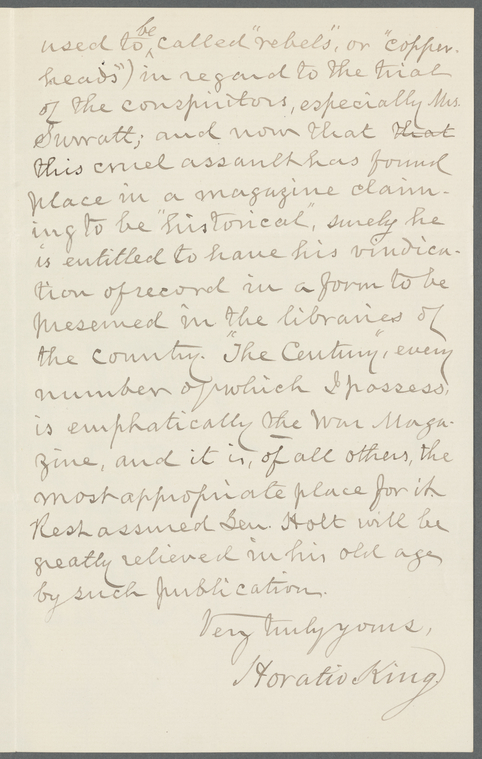 used to be called "rebels", or "copper-
heads") in regard to the trial
of the conspiritors, especially Mrs.
Surratt; and now that that
this cruel assault has found
place in a magazine claim-
ing to be "historical", surely he
is entitled to have his vindica-
tion of record in a form to be
preserved in the libraries of
the country. "The Century", every
number of which I possess,
is emphatically the War Maga-
zine, and it is, of all others, the
most appropriate place for it.
Rest assured Gen. Holt will be
greatly relieved in his old age
by such publication.
Very truly yours,
Horatio King